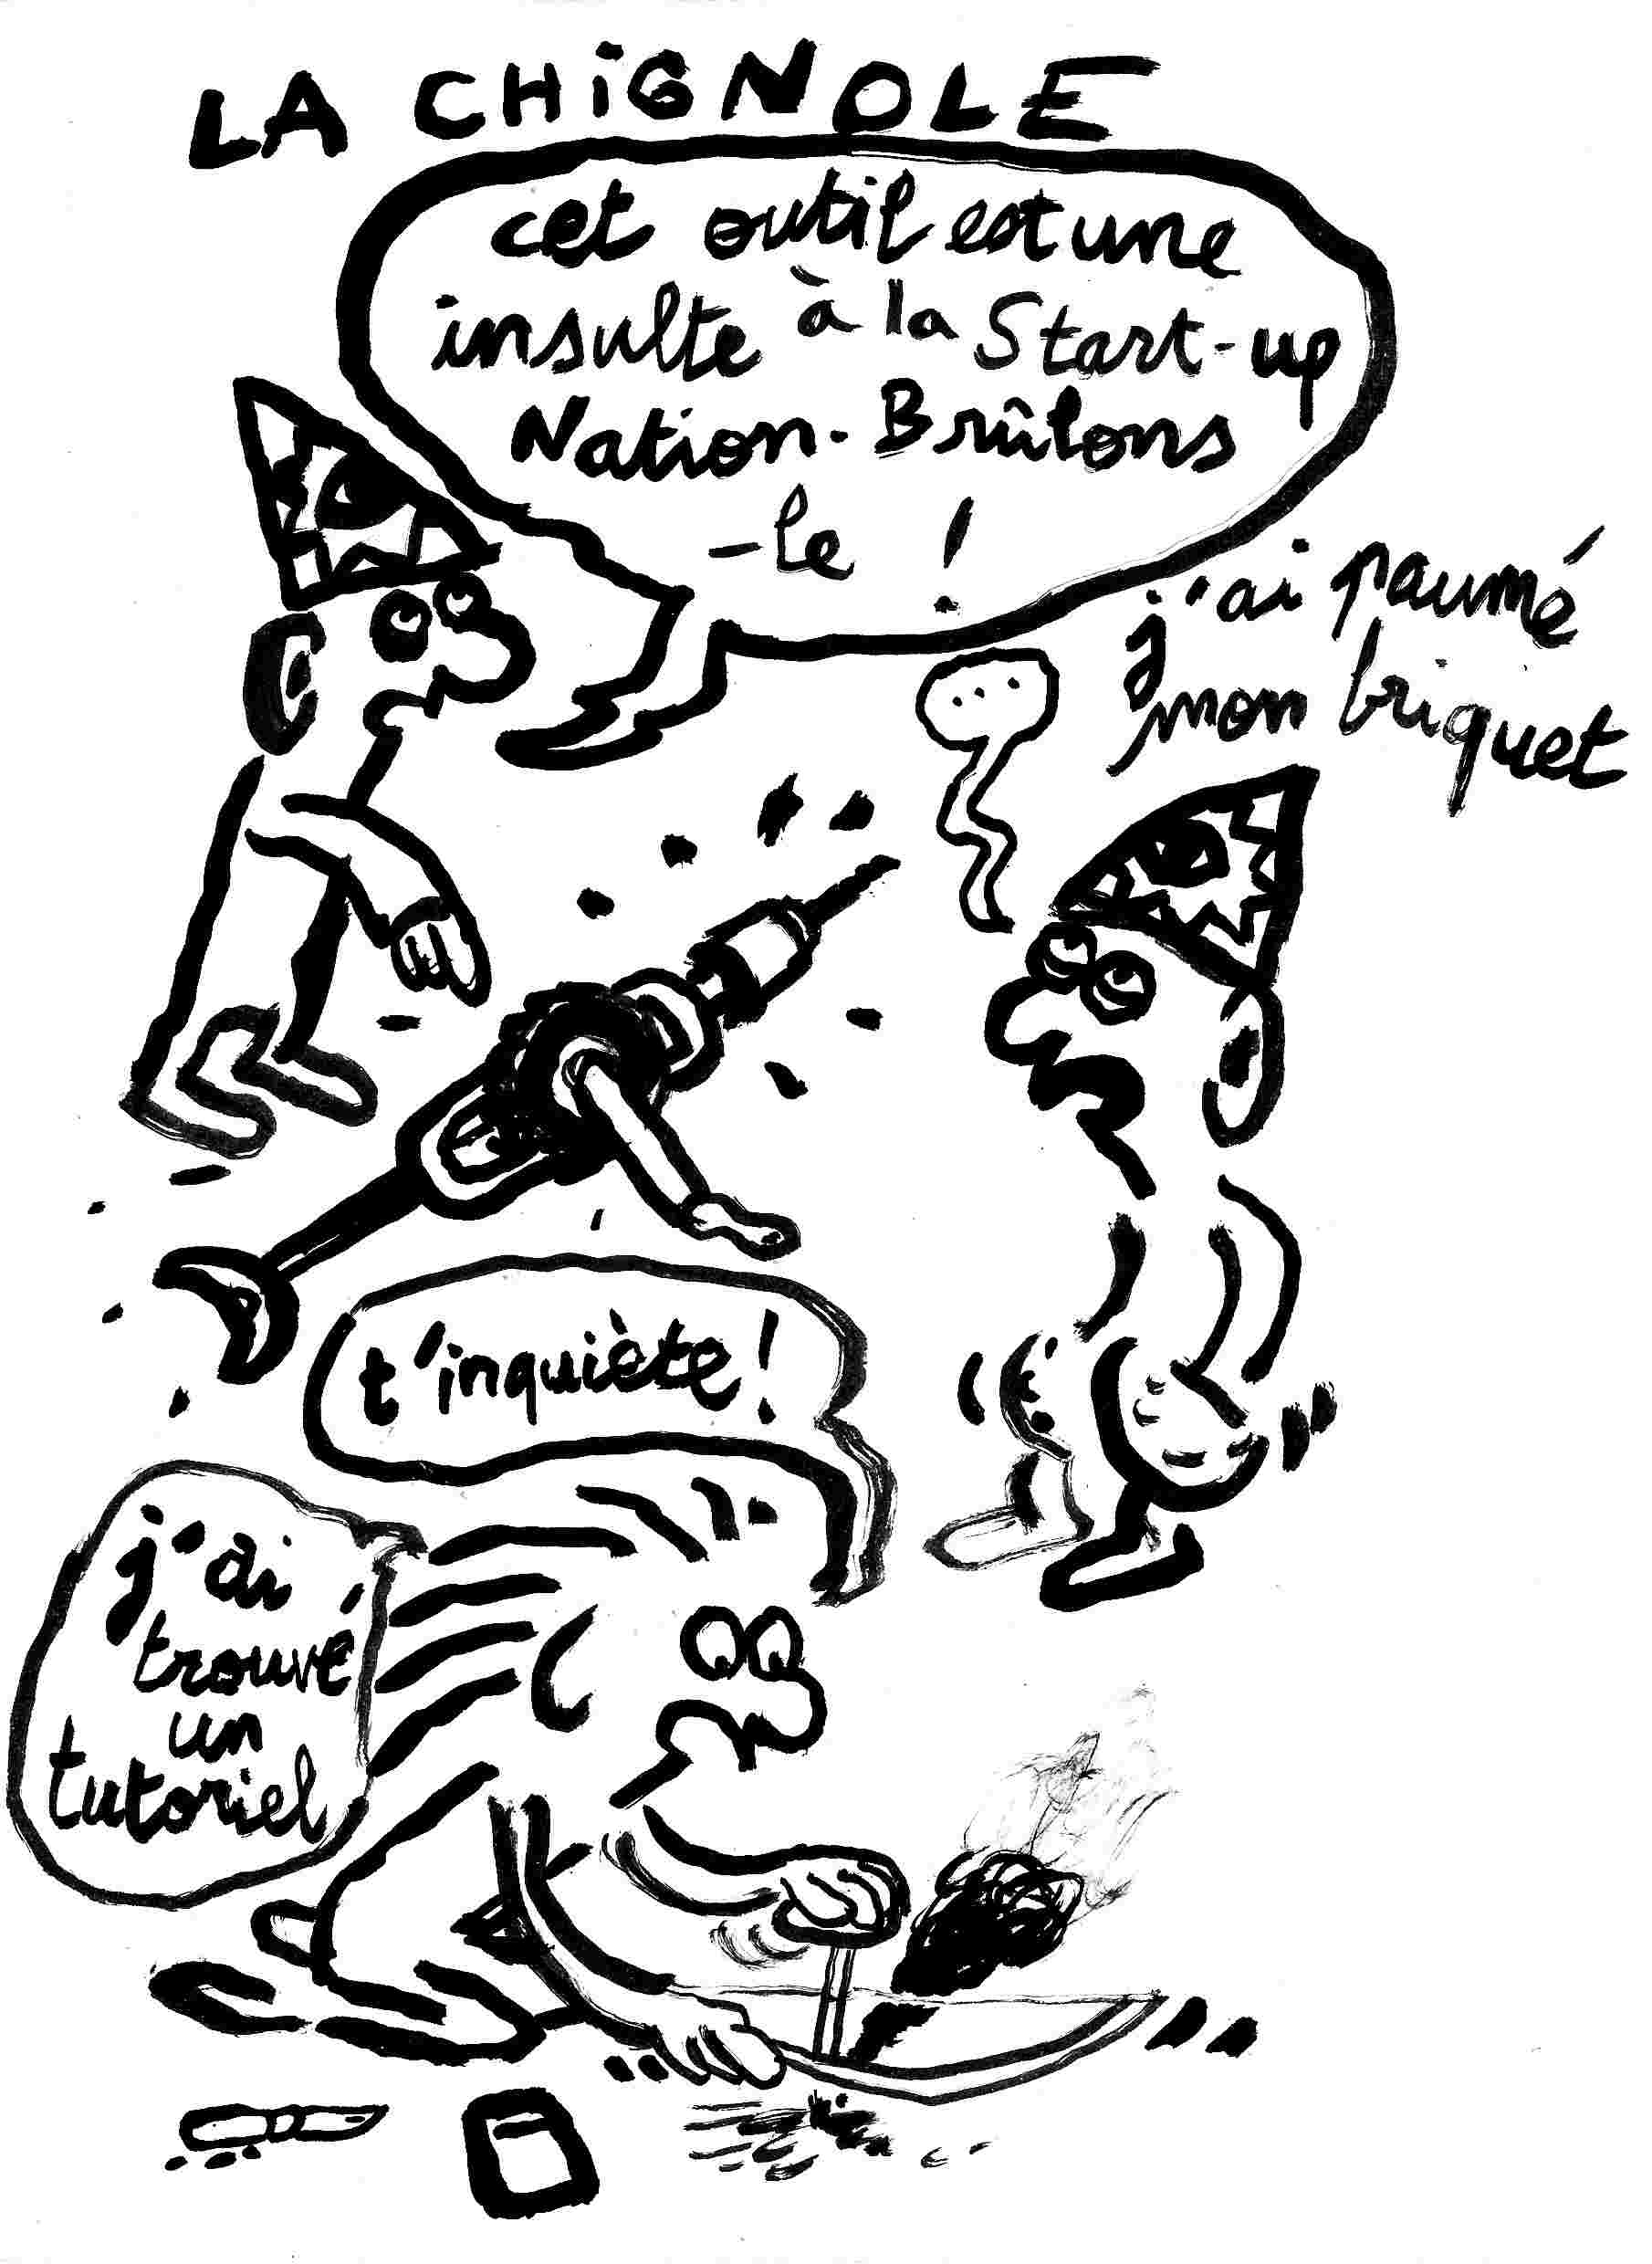 LA CHiGNOLE
cet outil est une
insulte à la Start-up
Nation. Brûlons
-le !
j'ai paumé
mon briquet
...
t'inquiète !
j'ai
trouvé
un
tutoriel